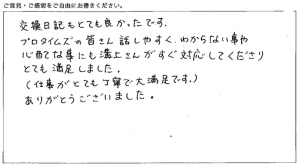 ご意見・ご感想をご自由にお書きください。
交換日記もとても良かったです。
プロタイムズの皆さん話しやすく、わからない事や
心配な事にも溝上さんがすぐ対応してくださり
とても満足しました。
(仕事がとても丁寧で大満足です。)
ありがとうございました。